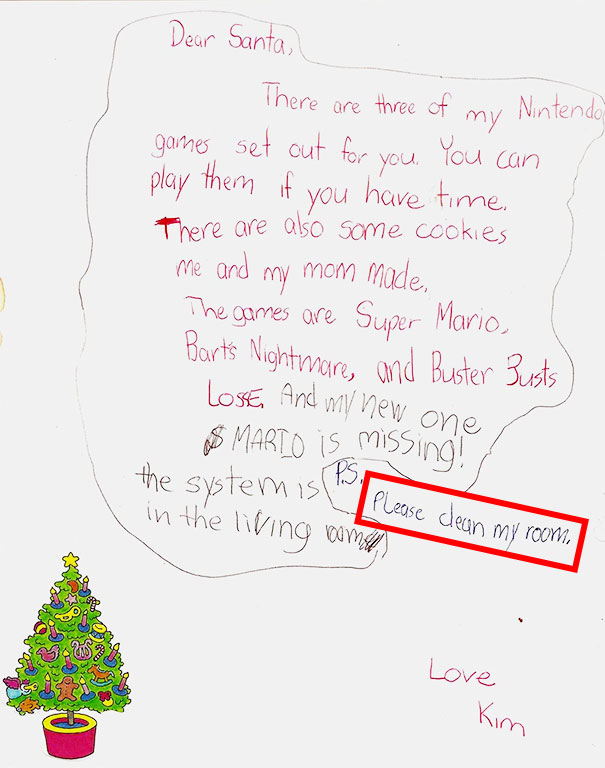 Dear Santa,
There are three of my Nintendo
games set out for you. You can
play them if you have time.
There are also some cookies
me and my mom made.
The games are Super Mario,
Bart's Nightmare, and Buster Busts
LOSSE. And my new one
MARIO is missing!
the system is
in the living room
P.S.
Please clean my room.
Love
Kim